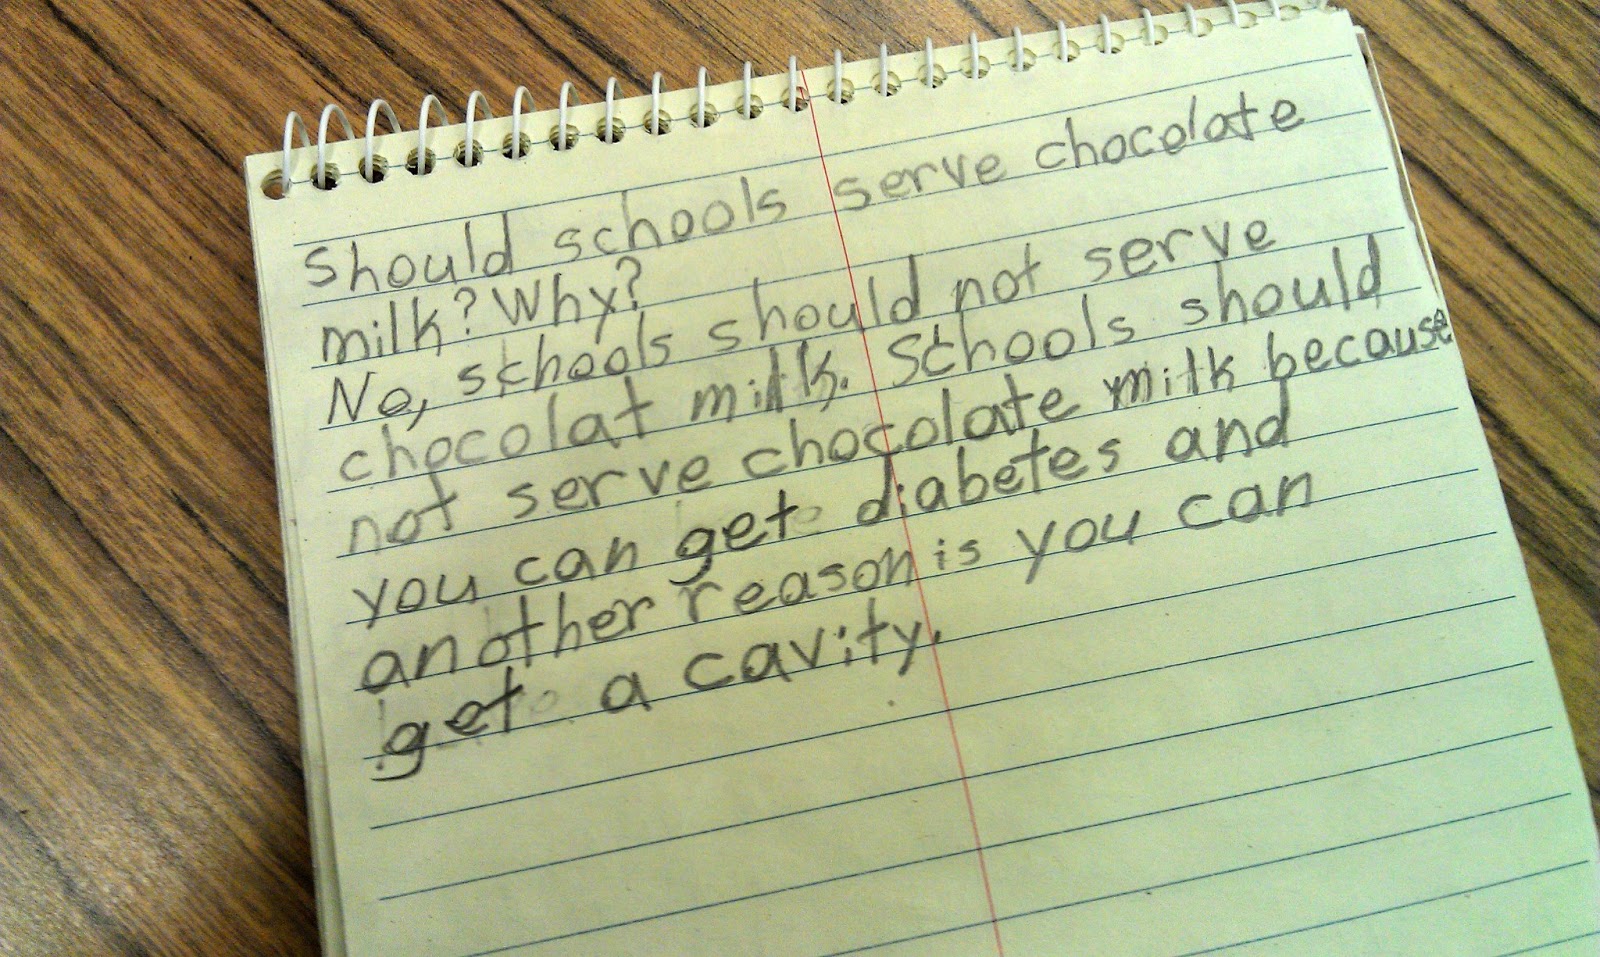 Should schools serve chocolate
milk? Why?
No, schools should not serve
chocolat milk. Schools should
not serve chocolate milk because
you can get diabetes and
another reason is you can
get a cavity.